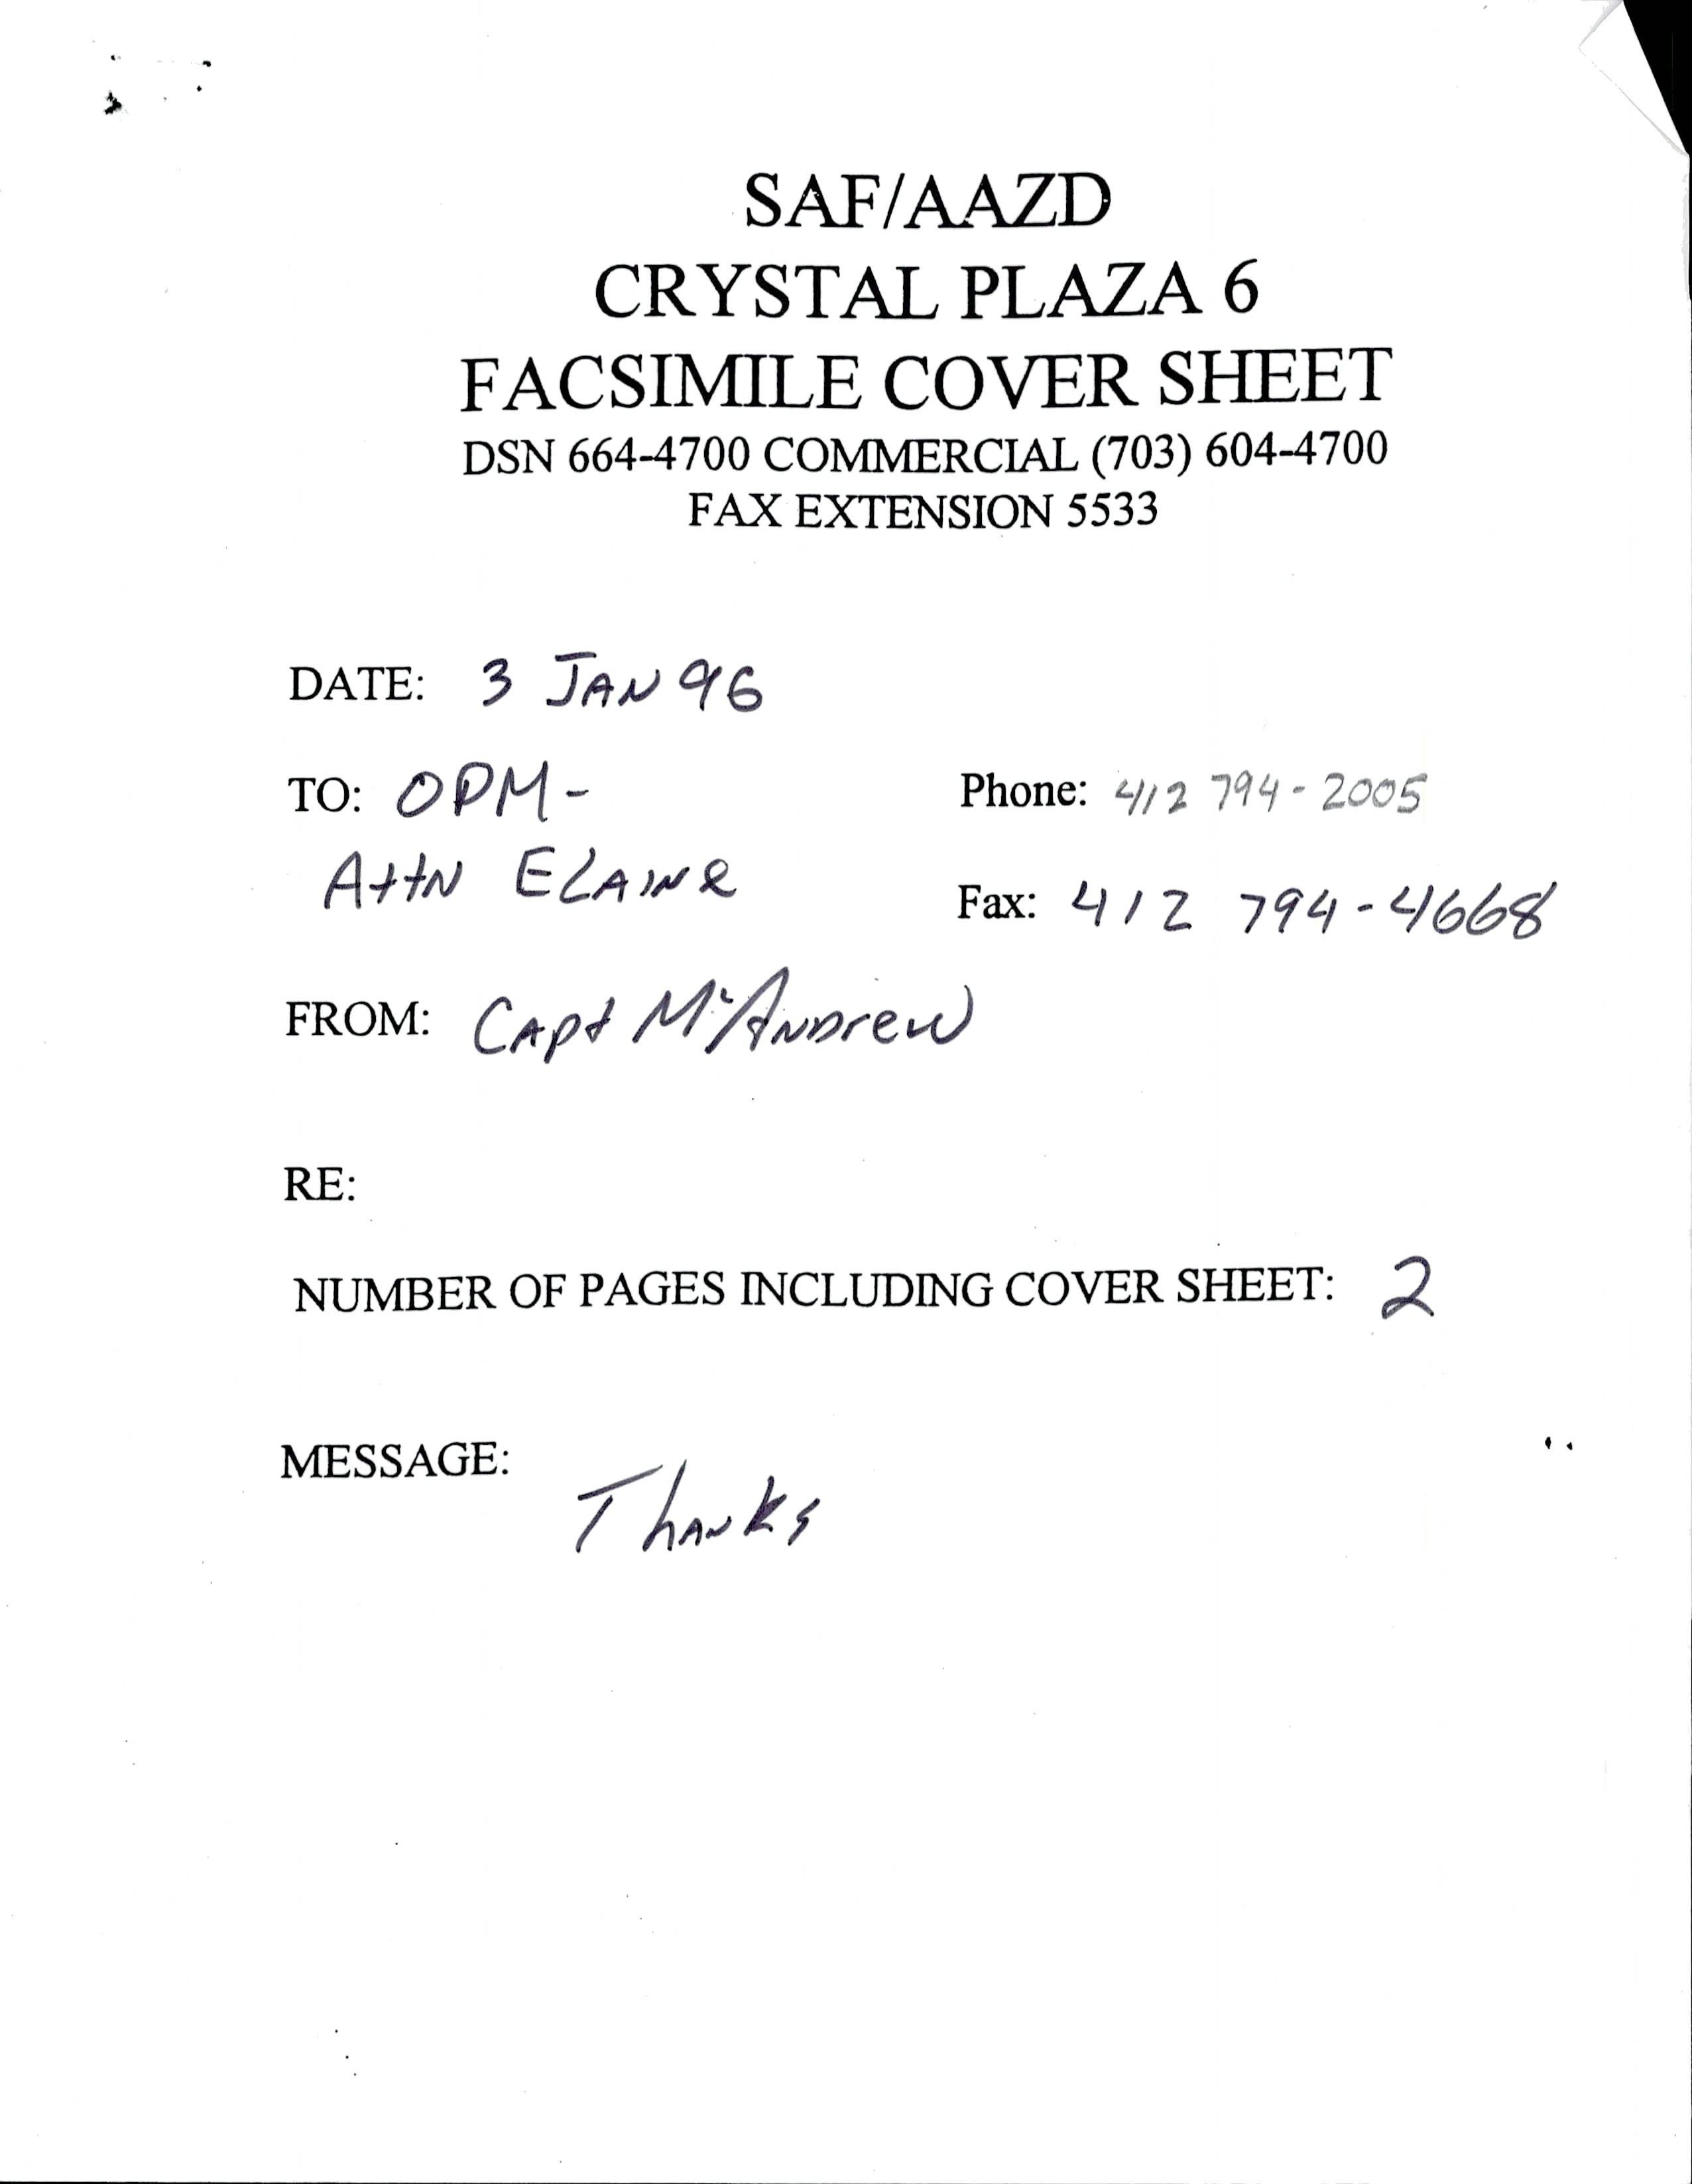 SAF/AAZD
CRYSTAL PLAZA 6
FACSIMILE COVER SHEET
DSN 664-4700 COMMERCIAL (703) 604-4700
FAX EXTENSION 5533
DATE: 3 JAN 96
TO: OPM-
Phone: 412 794-2005
Attn ELAINe
Fax: 412 794-4668
FROM: Capt McAndrew
RE:
NUMBER OF PAGES INCLUDING COVER SHEET: 2
MESSAGE:
Thanks